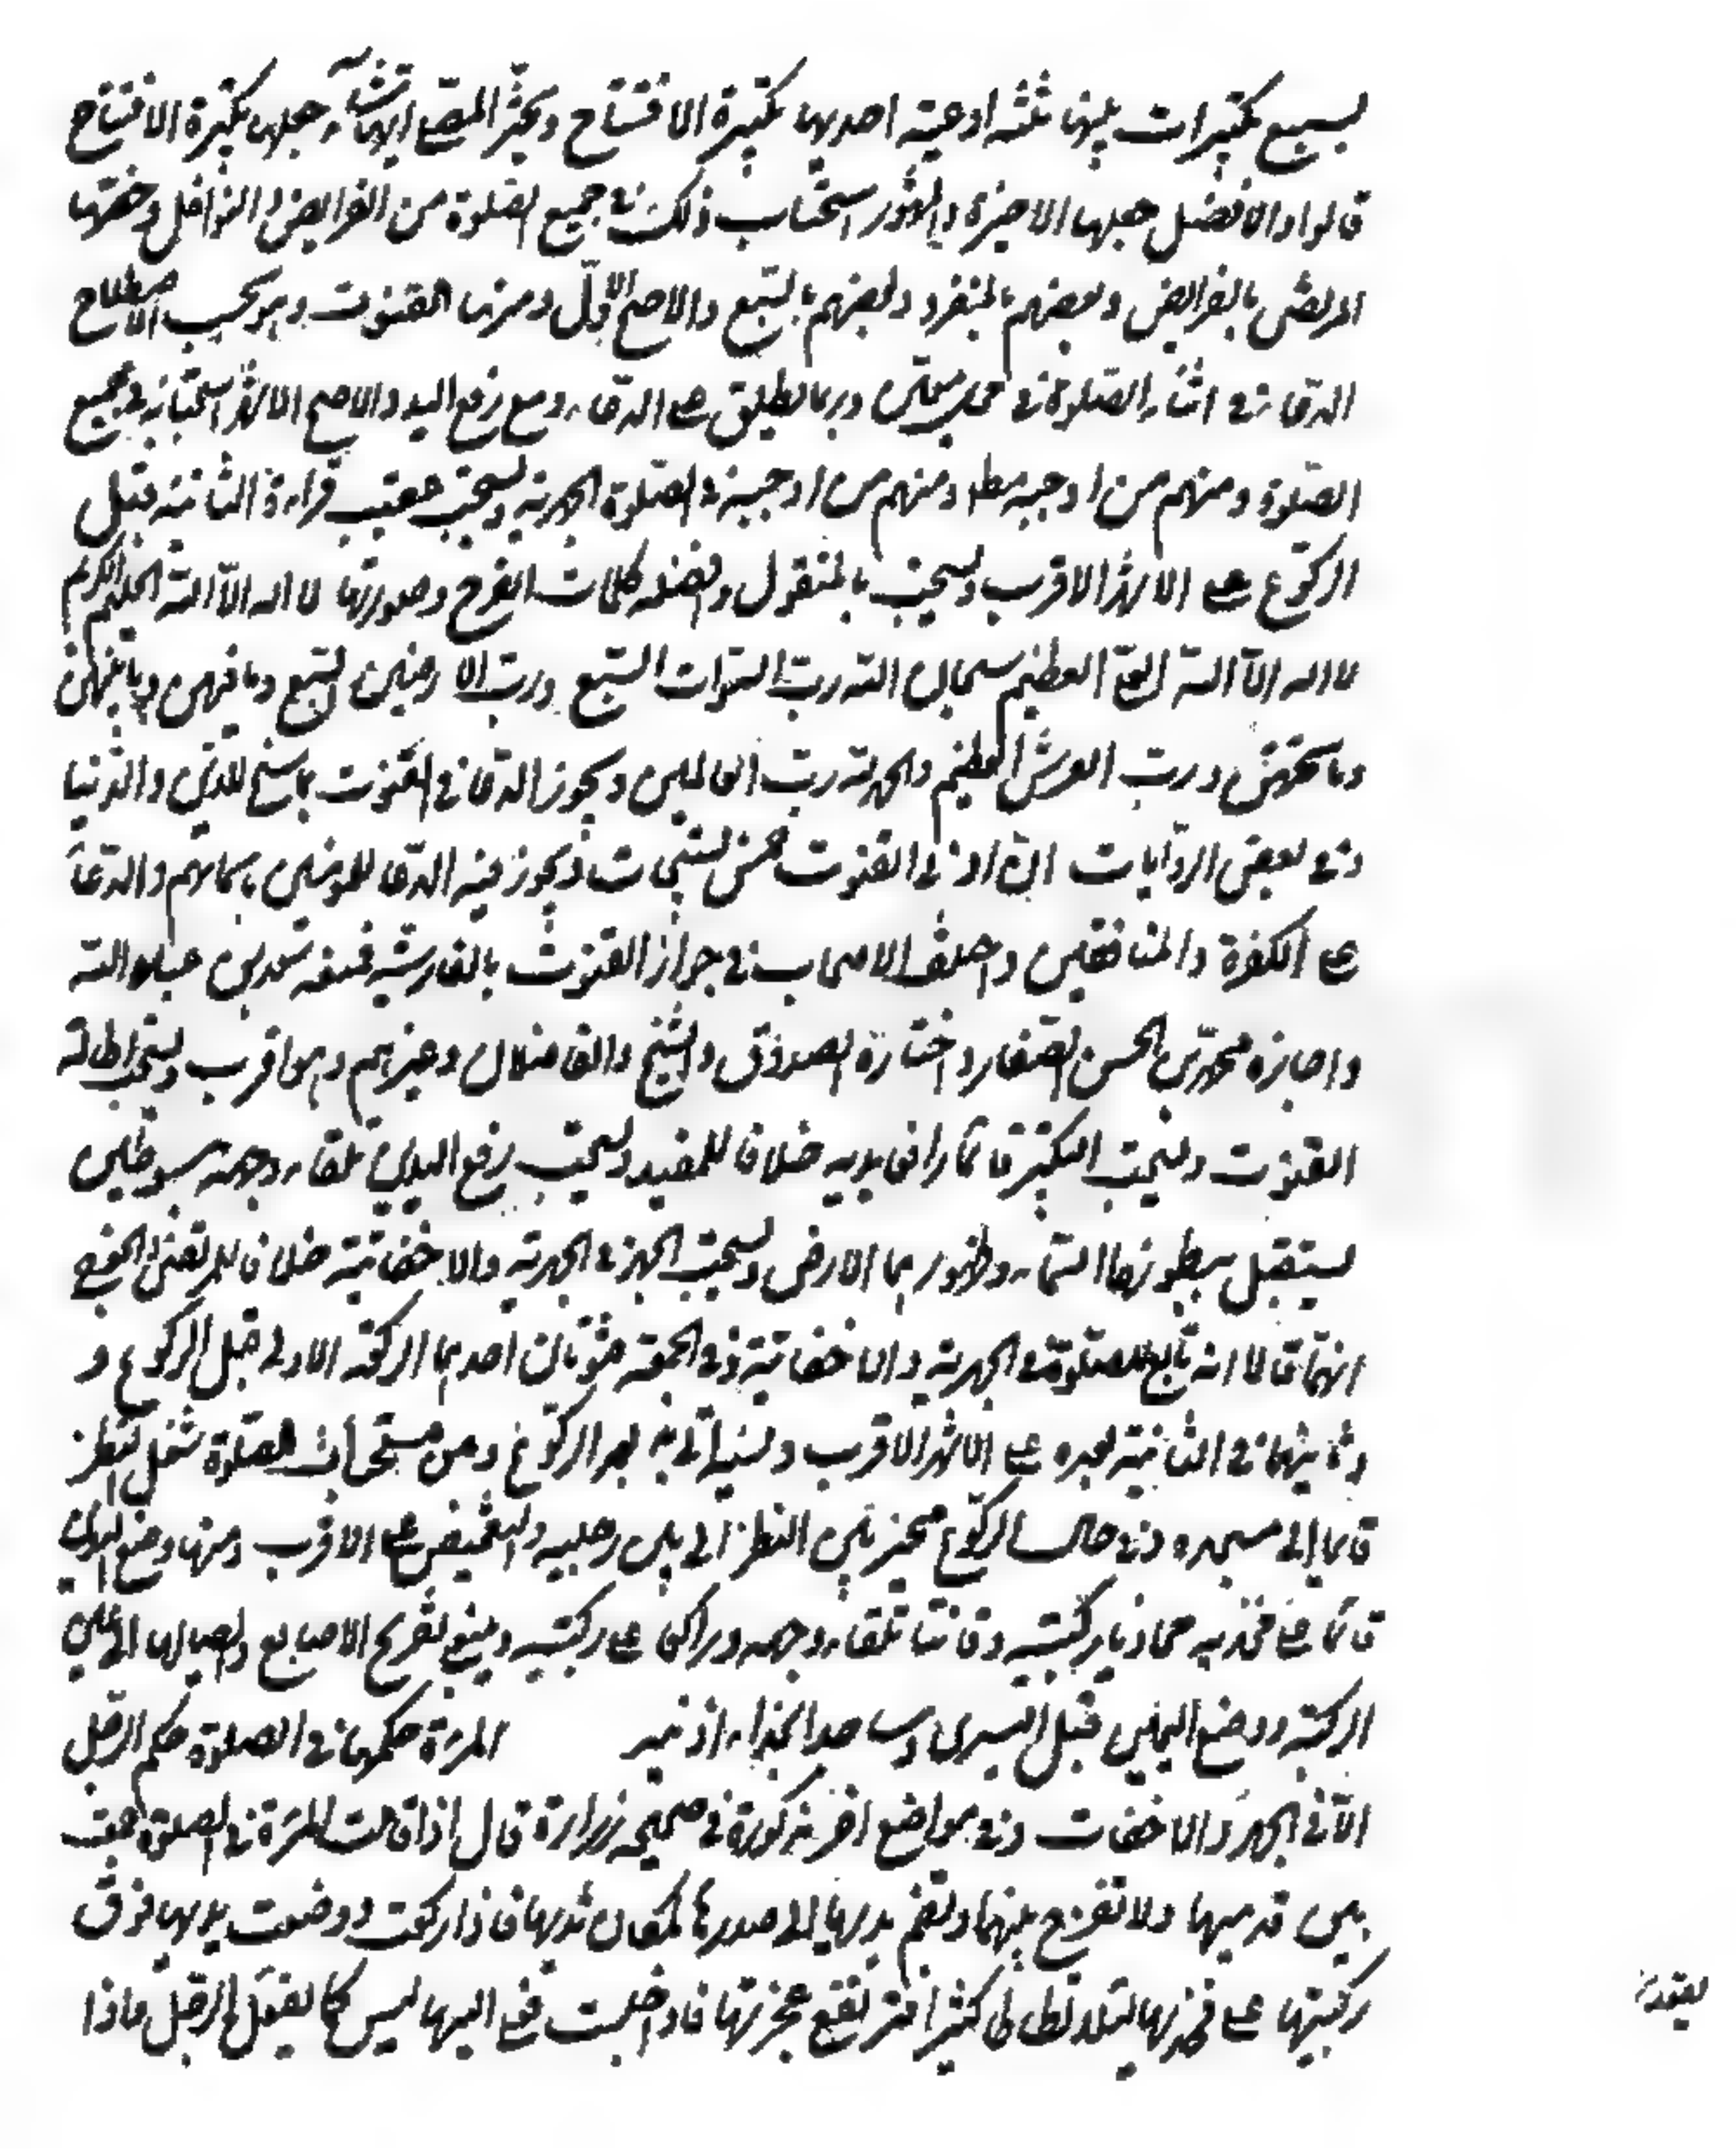 بسبع تكبيرات بينها ثلثه ادعية احديها تكبيرة الافتتاح ويخير المصلى ايها شآء جعلها تكبيرة الافتتاح
قالوا والافضل جعلها الاخيرة والمشهور استحباب ذلك في جميع الصلوة من الفرايض والنوافل وخصها
المرتضى بالفرايض وبعضهم بالمنفرد وبعضهم بالسبع والاصح الاوّل ومنها القنوت وهو بحسب الاصطلاح
الدعا في اثناء الصلوة في محل معيّن وربما يطلق على الدعاء مع رفع اليد والاصح الاشهر استحبابه في جميع
الصلوة ومنهم من اوجبه مطلا ومنهم من اوجبه في الصلوة الجهرية ويستحب عقيب قراءة الثانية قبل
الركوع على الاشهر الاقرب ويستحب بالمنقول وافضله كلمات الفرج وصورتها لا اله الّا اللّه الحليم الكريم
لا اله الّا اللّه العلىّ العظيم سبحان اللّه ربّ السموات السبع وربّ الارضين السبع وما فيهن وما بينهن
وما تحتهن ورب العرش العظيم والحمد لله ربّ العالمين ويجوز الدعا في القنوت بما سنح للدين والدّنيا
وفي بعض الروايات انّ ادنى القنوت خمس تسبيحات ويجوز فيه الدعا للمؤمنين باسمائهم والدّعآ
على الكفرة والمنافقين واختلف الاصحاب في جواز القنوت بالفارسيّة فمنعه سعد بن عبد اللّه
واجازه محمّد بن الحسن الصفار واختاره الصدوق والشيخ والفاضلان وغيرهم وهو اقرب ويستحب اطالة
القنوت ويستحب التكبير قائما رافعا يديه خلافا للمفيد ويستحب رفع اليدين تلقاء وجهه مبسوطتين
يستقبل ببطونهما السّماء وظهورهما الارض ويستحب الجهر في الجهرية والاخفاتية خلافا للمرتضى والجعفي
انهما قالا انه تابع للصلوة في الجهرية والاخفاتية وفي الجمعة قنوتان احدهما الركعة الاولى قبل الركوع و
وثانيهما في الثانية بعده على الاشهر الاقرب وناسيه ياتي به بعد الركوع ومن مستحبات الصلوة شغل النظر
قائما الى مسجده وفي حال الركوع مخير بين النظر الى بين رجليه والتغميض على الاقرب ومنها وضع اليدين
قائما على فخذيه محاذيا ركبتيه وقانتا تلقاء وجهه وراكعا على ركبتيه وينبغي تفريج الاصابع وايصالها الى عين
الركبة ووضع اليمين قبل اليسرى المرءة حكمها في الصلوة حكم الرجل
الّا في الجهر والاخفات وفي مواضع اخر مذكورة في صحيحه زرارة قال اذا قامت المرءة في الصلوة جمعت
بين قدميها ولا تفرج بينهما وتضم يديها الى صدرها لمكان ثديها فاذا ركعت ووضعت يديها فوق
ركبتيها على فخذيها لئلا تطاطى كثيرا فترتفع عجزتها فاذا جلست فعلى اليها ليس كما يقعد الرجل فاذا
يقعد